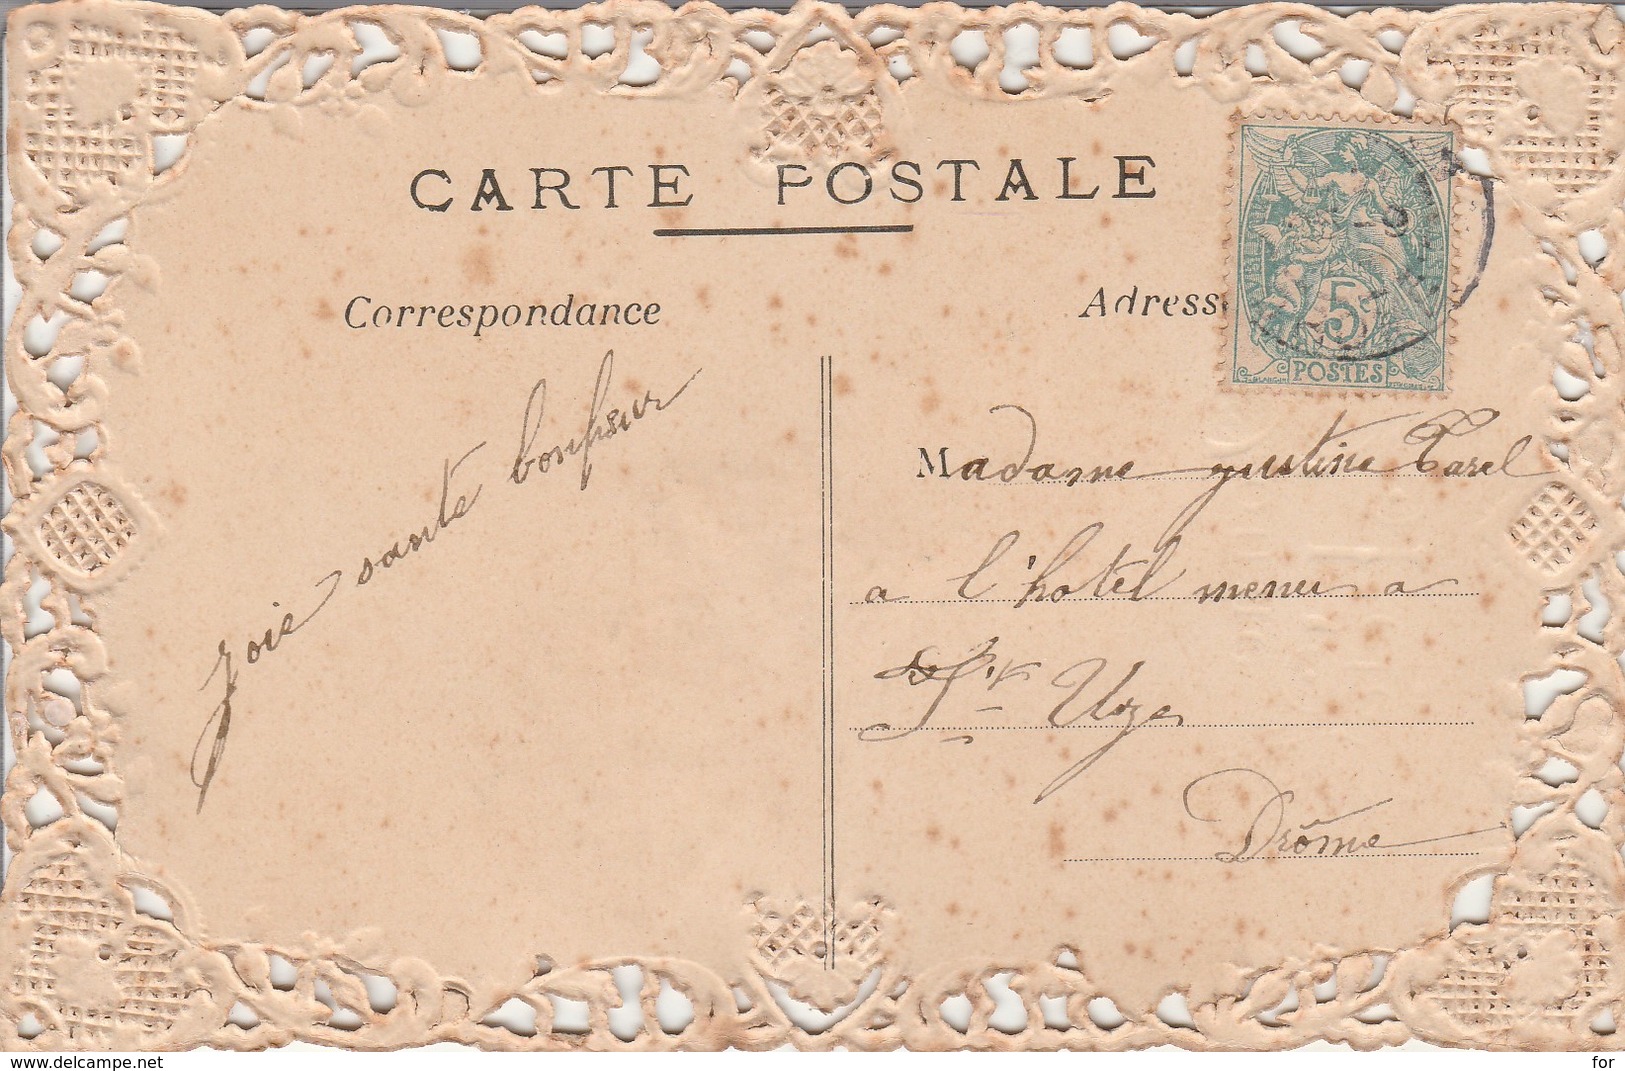 CARTE POSTALE
Correspondance
Adresse
5
POSTES
Joie santé bonheur
Madame Justine Carel
a l'hotel menu a
St Uze
Drôme
www.delcampe.net
for